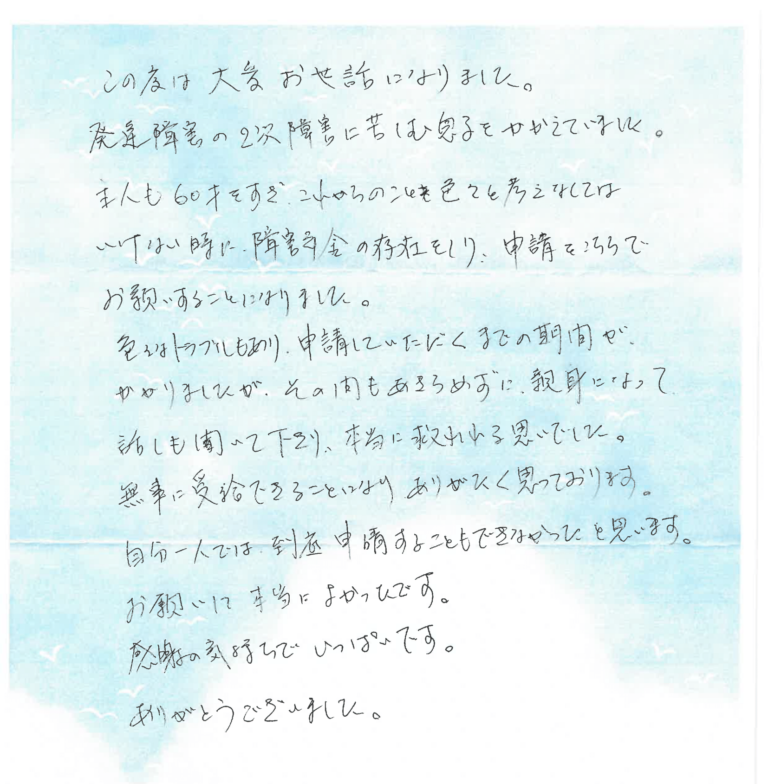 この度は大変お世話になりました。
発達障害の2次障害に苦しむ息子をかかえていました。
主人も60才をすぎ、これからのことも色々と考えなくては
いけない時に、障害年金の存在をしり、申請をこちらで
お願いすることになりました。
色々なトラブルもあり、申請していただくまでの期間が、
かかりましたが、その間もあきらめずに、親身になって
話しも聞いて下さり、本当に救われる思いでした。
無事に受給できることになりありがたく思っております。
自分一人では、到底申請することもできなかったと思います。
お願いして本当によかったです。
感謝の気持ちでいっぱいです。
ありがとうございました。